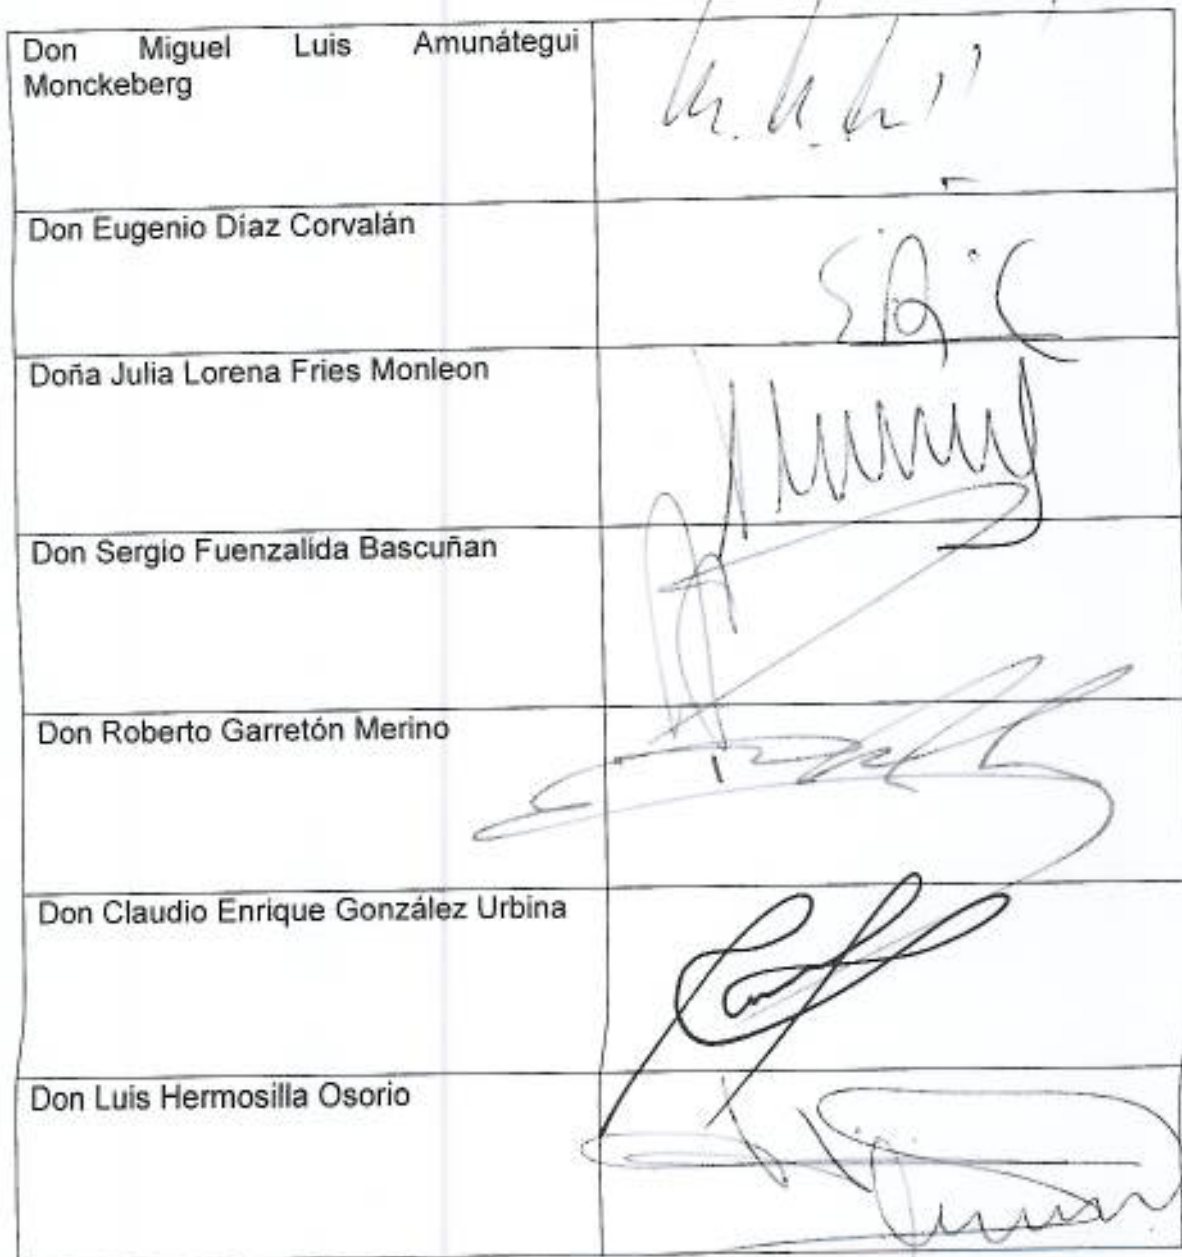 Don Miguel Luis Amunátegui
Monckeberg
Don Eugenio Díaz Corvalán
Doña Julia Lorena Fries Monleon
Don Sergio Fuenzalida Bascuñan
Don Roberto Garretón Merino
Don Claudio Enrique González Urbina
Don Luis Hermosilla Osorio